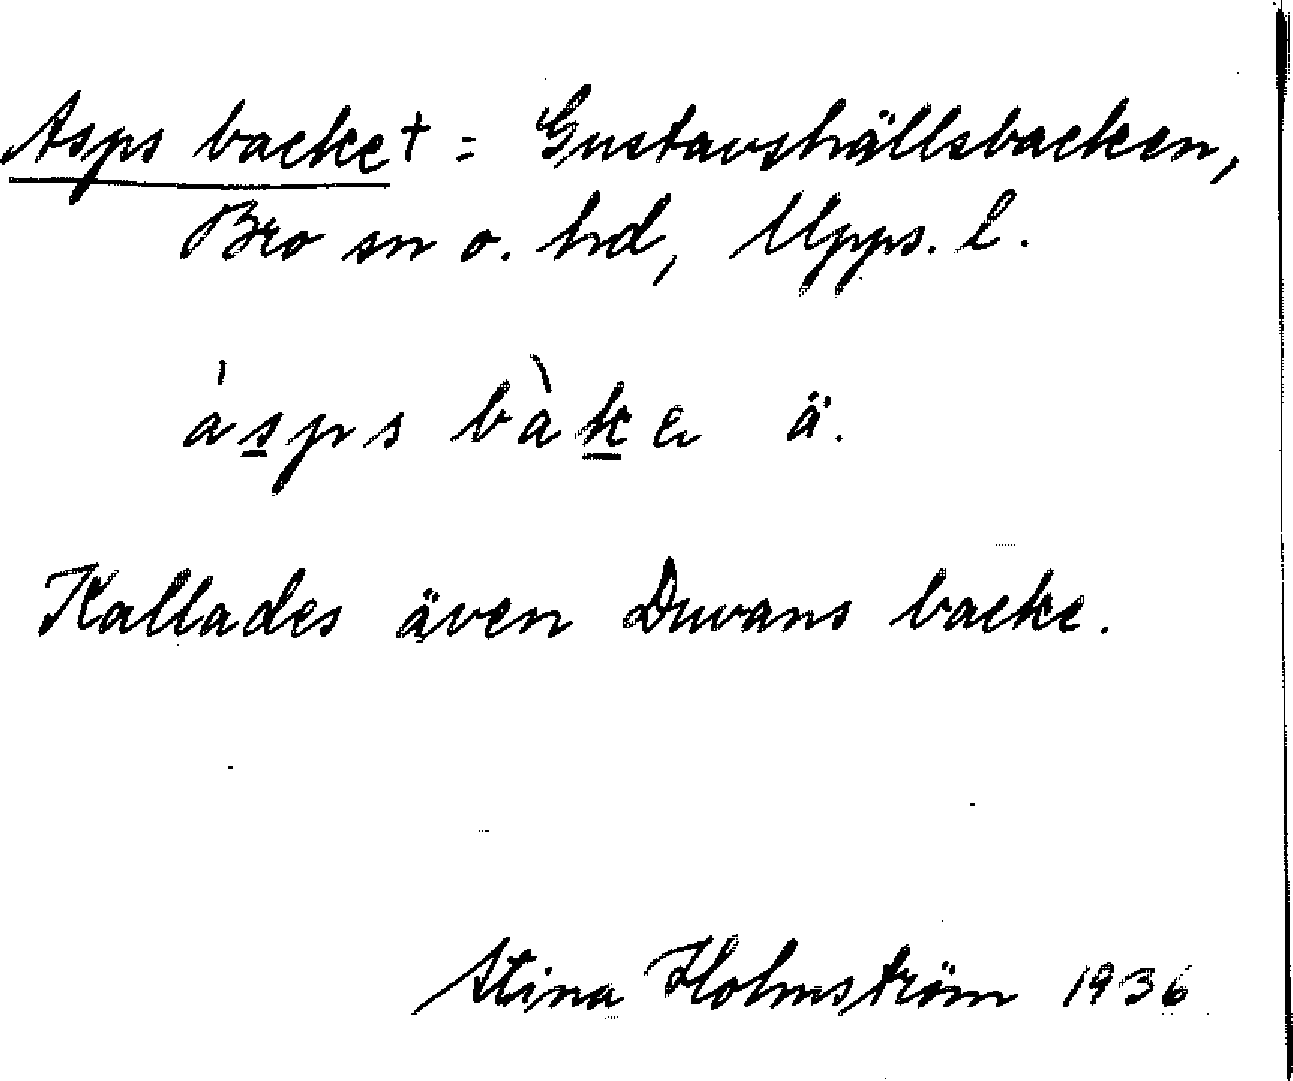 Asps backe† = Gustavshällsbacken,
Bro sn o. hd, Upps. l.
ásps bàkɛ ä.
Kallades även Duvans backe.
Stina Holmström 1936